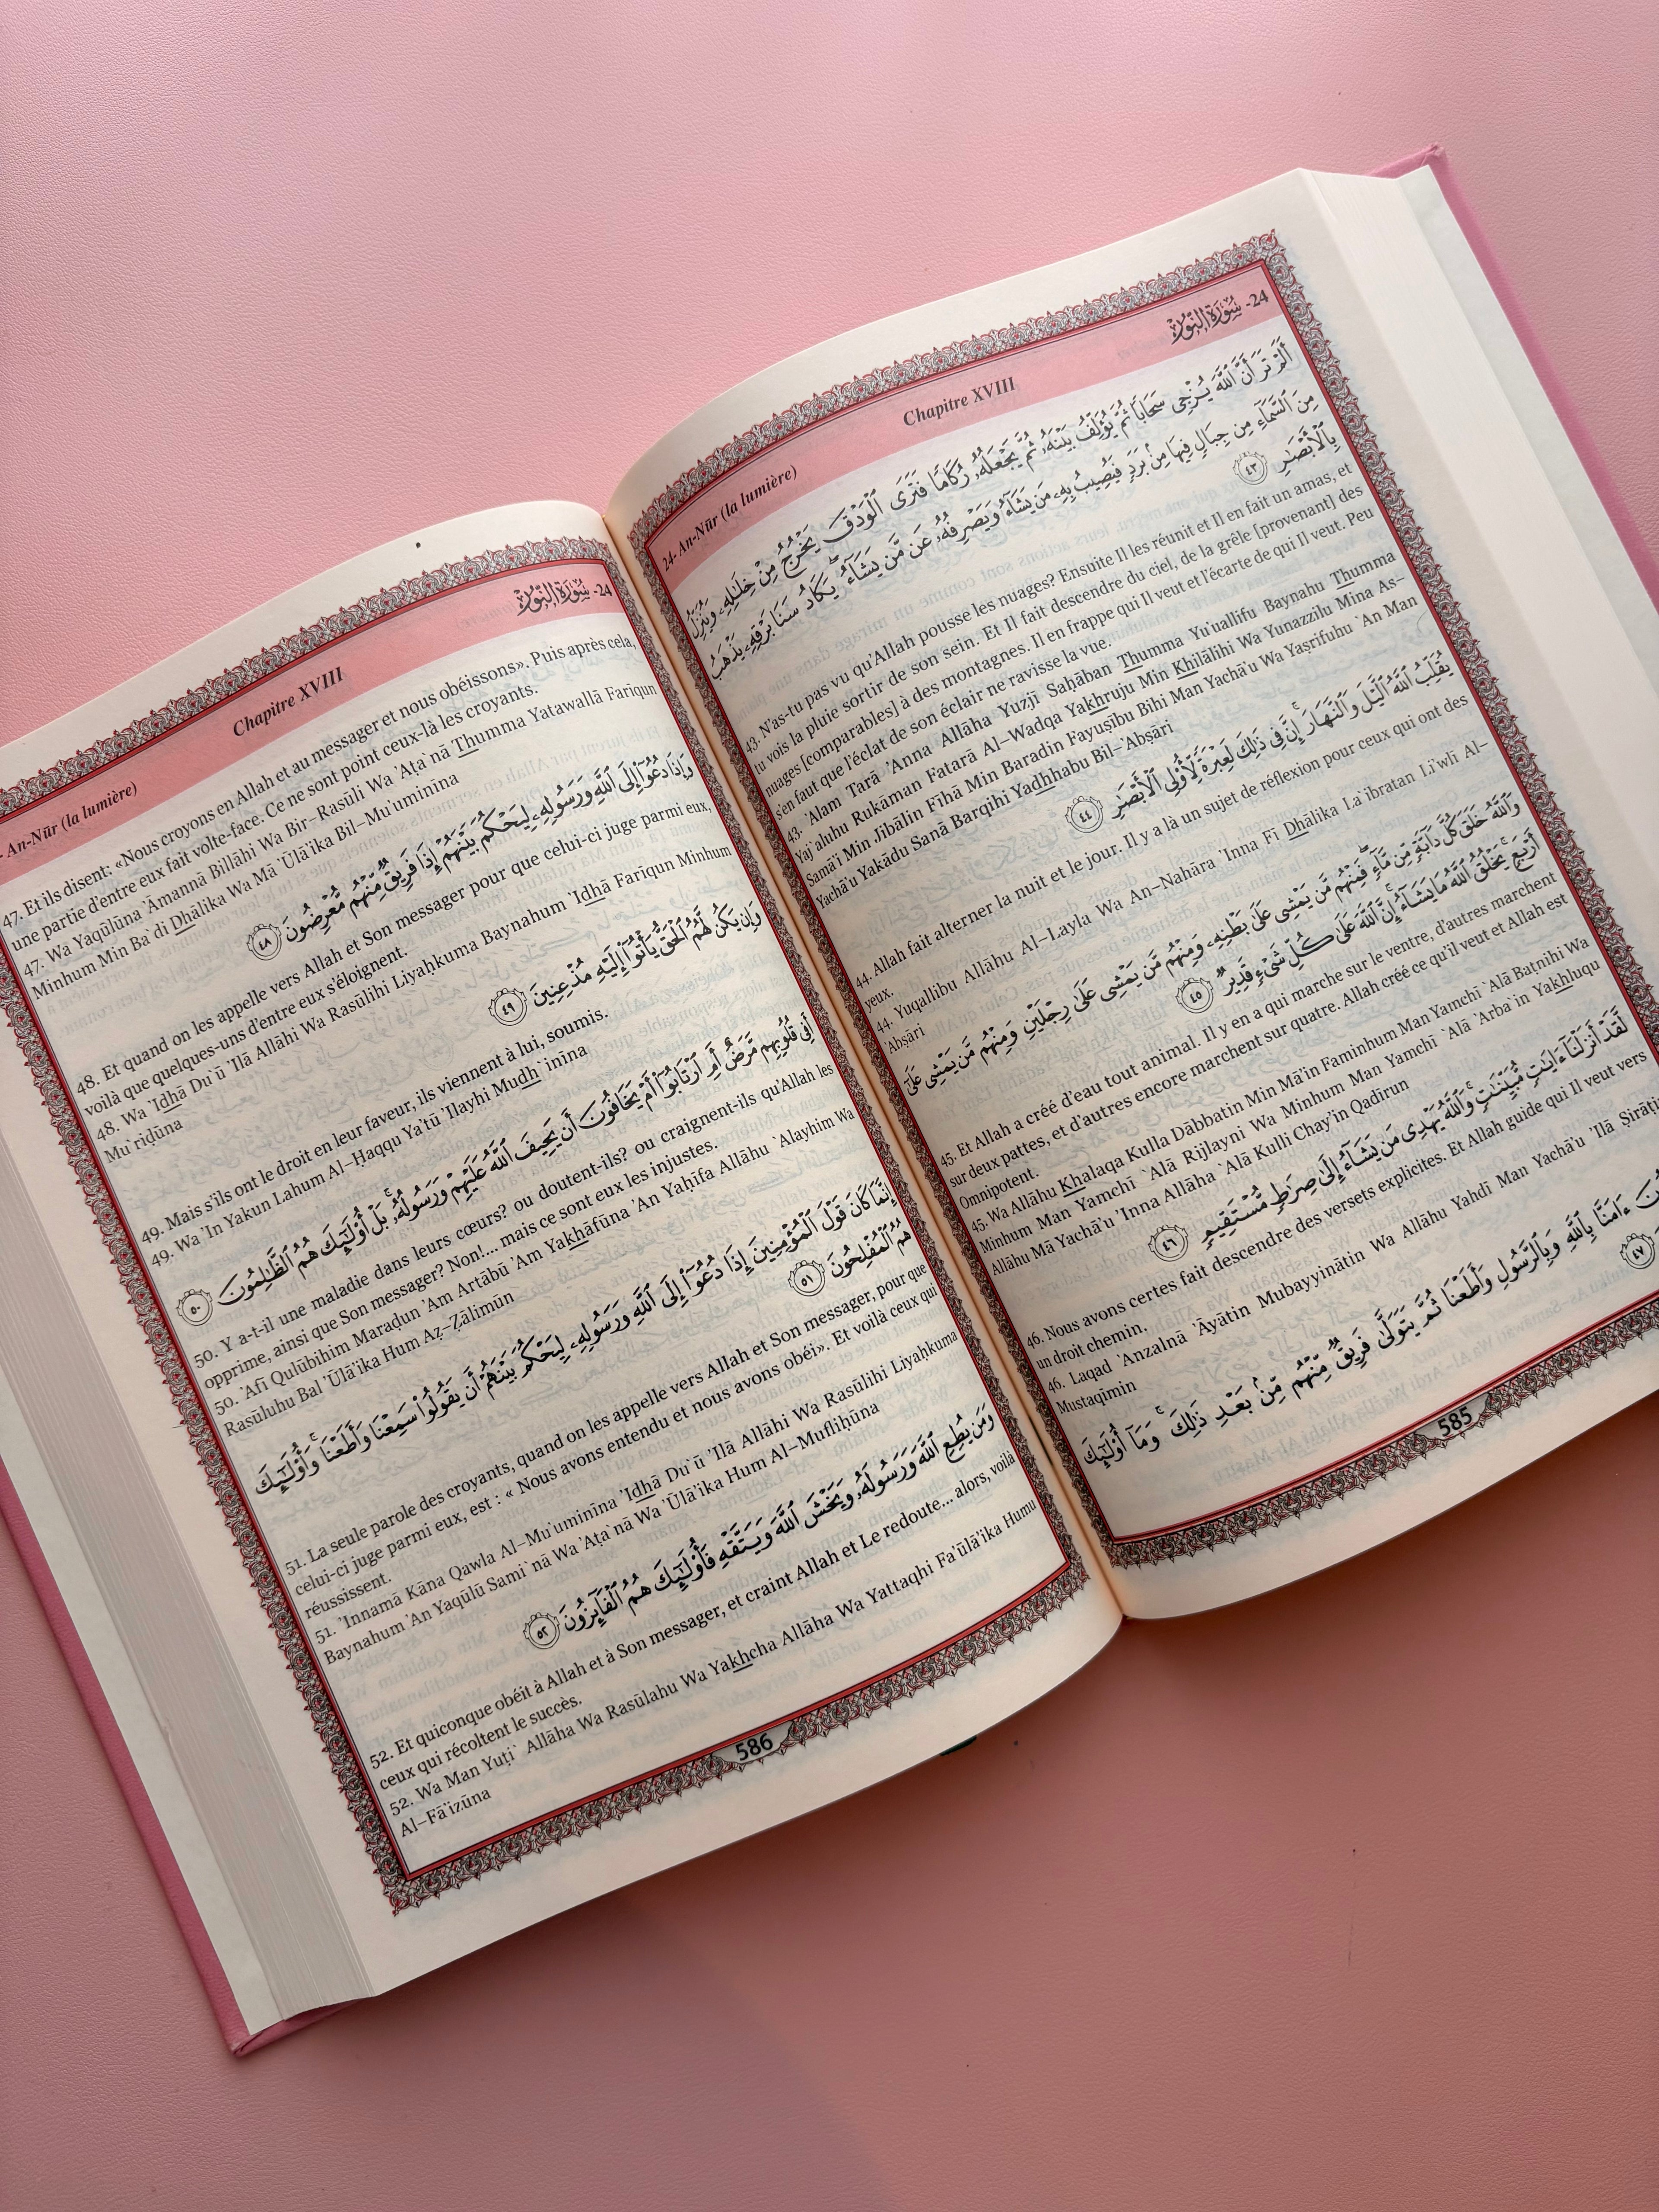 24- An-Nūr (la lumière)
Chapitre XVIII
سُورَةُ النُّورِ -24
أَلَمْ تَرَ أَنَّ ٱللَّهَ يُزْجِى سَحَابًا ثُمَّ يُؤَلِّفُ بَيْنَهُۥ ثُمَّ يَجْعَلُهُۥ رُكَامًا فَتَرَى ٱلْوَدْقَ يَخْرُجُ مِنْ خِلَـٰلِهِۦ وَيُنَزِّلُ
مِنَ ٱلسَّمَآءِ مِن جِبَالٍ فِيهَا مِنۢ بَرَدٍ فَيُصِيبُ بِهِۦ مَن يَشَآءُ وَيَصْرِفُهُۥ عَن مَّن يَشَآءُ ۖ يَكَادُ سَنَا بَرْقِهِۦ يَذْهَبُ
بِٱلْأَبْصَـٰرِ ٤٣
43. N'as-tu pas vu qu'Allah pousse les nuages? Ensuite Il les réunit et Il en fait un amas, et
tu vois la pluie sortir de son sein. Et Il fait descendre du ciel, de la grêle [provenant] des
nuages [comparables] à des montagnes. Il en frappe qui Il veut et l'écarte de qui Il veut. Peu
s'en faut que l'éclat de son éclair ne ravisse la vue.
43. 'Alam Tarā 'Anna Allāha Yuzjī Saḥāban Thumma Yu'uallifu Baynahu Thumma
Yaj`aluhu Rukāman Fatarā Al–Wadqa Yakhruju Min Khilālihi Wa Yunazzilu Mina As–
Samā'i Min Jibālin Fīhā Min Baradin Fayuṣību Bihi Man Yachā'u Wa Yaṣrifuhu `An Man
Yachā'u Yakādu Sanā Barqihi Yadhhabu Bil–'Abṣāri
يُقَلِّبُ ٱللَّهُ ٱلَّيْلَ وَٱلنَّهَارَ ۚ إِنَّ فِى ذَٰلِكَ لَعِبْرَةً لِّأُو۟لِى ٱلْأَبْصَـٰرِ ٤٤
44. Allah fait alterner la nuit et le jour. Il y a là un sujet de réflexion pour ceux qui ont des
yeux.
44. Yuqallibu Allāhu Al–Layla Wa An–Nahāra 'Inna Fī Dhālika La`ibratan Li'wlī Al–
'Abṣāri
وَٱللَّهُ خَلَقَ كُلَّ دَآبَّةٍ مِّن مَّآءٍ ۖ فَمِنْهُم مَّن يَمْشِى عَلَىٰ بَطْنِهِۦ وَمِنْهُم مَّن يَمْشِى عَلَىٰ رِجْلَيْنِ وَمِنْهُم مَّن يَمْشِى عَلَىٰٓ
أَرْبَعٍ ۚ يَخْلُقُ ٱللَّهُ مَا يَشَآءُ ۚ إِنَّ ٱللَّهَ عَلَىٰ كُلِّ شَىْءٍ قَدِيرٌ ٤٥
45. Et Allah a créé d'eau tout animal. Il y en a qui marche sur le ventre, d'autres marchent
sur deux pattes, et d'autres encore marchent sur quatre. Allah créé ce qu'il veut et Allah est
Omnipotent.
45. Wa Allāhu Khalaqa Kulla Dābbatin Min Mā'in Faminhum Man Yamchī `Alā Baṭnihi Wa
Minhum Man Yamchī `Alā Rijlayni Wa Minhum Man Yamchī `Alā 'Arba`in Yakhluqu
Allāhu Mā Yachā'u 'Inna Allāha `Alā Kulli Chay'in Qadīrun
لَّقَدْ أَنزَلْنَآ ءَايَـٰتٍ مُّبَيِّنَـٰتٍ ۚ وَٱللَّهُ يَهْدِى مَن يَشَآءُ إِلَىٰ صِرَٰطٍ مُّسْتَقِيمٍ ٤٦
46. Nous avons certes fait descendre des versets explicites. Et Allah guide qui Il veut vers
un droit chemin.
46. Laqad 'Anzalnā 'Āyātin Mubayyinātin Wa Allāhu Yahdī Man Yachā'u 'Ilā
Mustaqīmin
ءَامَنَّا بِٱللَّهِ وَبِٱلرَّسُولِ وَأَطَعْنَا ثُمَّ يَتَوَلَّىٰ فَرِيقٌ مِّنْهُم مِّنۢ بَعْدِ ذَٰلِكَ ۚ وَمَآ أُو۟لَـٰٓئِكَ
٤٧
585
An-Nūr (la lumière)
Chapitre XVIII
سُورَةُ النُّورِ -24
47. Et ils disent: «Nous croyons en Allah et au messager et nous obéissons». Puis après cela,
une partie d'entre eux fait volte-face. Ce ne sont point ceux-là les croyants.
47. Wa Yaqūlūna 'Āmannā Billāhi Wa Bir–Rasūli Wa 'Aṭa`nā Thumma Yatawallā Farīqun
Minhum Min Ba`di Dhālika Wa Mā 'Ūlā'ika Bil–Mu'uminīna
وَإِذَا دُعُوٓا۟ إِلَى ٱللَّهِ وَرَسُولِهِۦ لِيَحْكُمَ بَيْنَهُمْ إِذَا فَرِيقٌ مِّنْهُم مُّعْرِضُونَ ٤٨
48. Et quand on les appelle vers Allah et Son messager pour que celui-ci juge parmi eux,
voilà que quelques-uns d'entre eux s'éloignent.
48. Wa 'Idhā Du`ū 'Ilā Allāhi Wa Rasūlihi Liyaḥkuma Baynahum 'Idhā Farīqun Minhum
Mu`riḍūna
وَإِن يَكُن لَّهُمُ ٱلْحَقُّ يَأْتُوٓا۟ إِلَيْهِ مُذْعِنِينَ ٤٩
49. Mais s'ils ont le droit en leur faveur, ils viennent à lui, soumis.
49. Wa 'In Yakun Lahum Al–Ḥaqqu Ya'tū 'Ilayhi Mudh`inīna
أَفِى قُلُوبِهِم مَّرَضٌ أَمِ ٱرْتَابُوٓا۟ أَمْ يَخَافُونَ أَن يَحِيفَ ٱللَّهُ عَلَيْهِمْ وَرَسُولُهُۥ ۚ بَلْ أُو۟لَـٰٓئِكَ هُمُ ٱلظَّـٰلِمُونَ ٥٠
50. Y a-t-il une maladie dans leurs cœurs? ou doutent-ils? ou craignent-ils qu'Allah les
opprime, ainsi que Son messager? Non!... mais ce sont eux les injustes.
50. 'Afī Qulūbihim Maraḍun 'Am Artābū 'Am Yakhāfūna 'An Yaḥīfa Allāhu `Alayhim Wa
Rasūluhu Bal 'Ūlā'ika Hum Aẓ–Ẓālimūn
إِنَّمَا كَانَ قَوْلَ ٱلْمُؤْمِنِينَ إِذَا دُعُوٓا۟ إِلَى ٱللَّهِ وَرَسُولِهِۦ لِيَحْكُمَ بَيْنَهُمْ أَن يَقُولُوا۟ سَمِعْنَا وَأَطَعْنَا ۚ وَأُو۟لَـٰٓئِكَ
هُمُ ٱلْمُفْلِحُونَ ٥١
51. La seule parole des croyants, quand on les appelle vers Allah et Son messager, pour que
celui-ci juge parmi eux, est : « Nous avons entendu et nous avons obéi». Et voilà ceux qui
réussissent.
51. 'Innamā Kāna Qawla Al–Mu'uminīna 'Idhā Du`ū 'Ilā Allāhi Wa Rasūlihi Liyaḥkuma
Baynahum 'An Yaqūlū Sami`nā Wa 'Aṭa`nā Wa 'Ūlā'ika Hum Al–Mufliḥūna
وَمَن يُطِعِ ٱللَّهَ وَرَسُولَهُۥ وَيَخْشَ ٱللَّهَ وَيَتَّقْهِ فَأُو۟لَـٰٓئِكَ هُمُ ٱلْفَآئِزُونَ ٥٢
52. Et quiconque obéit à Allah et à Son messager, et craint Allah et Le redoute... alors, voilà
ceux qui récoltent le succès.
52. Wa Man Yuṭi` Allāha Wa Rasūlahu Wa Yakhcha Allāha Wa Yattaqhi Fa'ūlā'ika Humu
Al–Fā'izūna
586